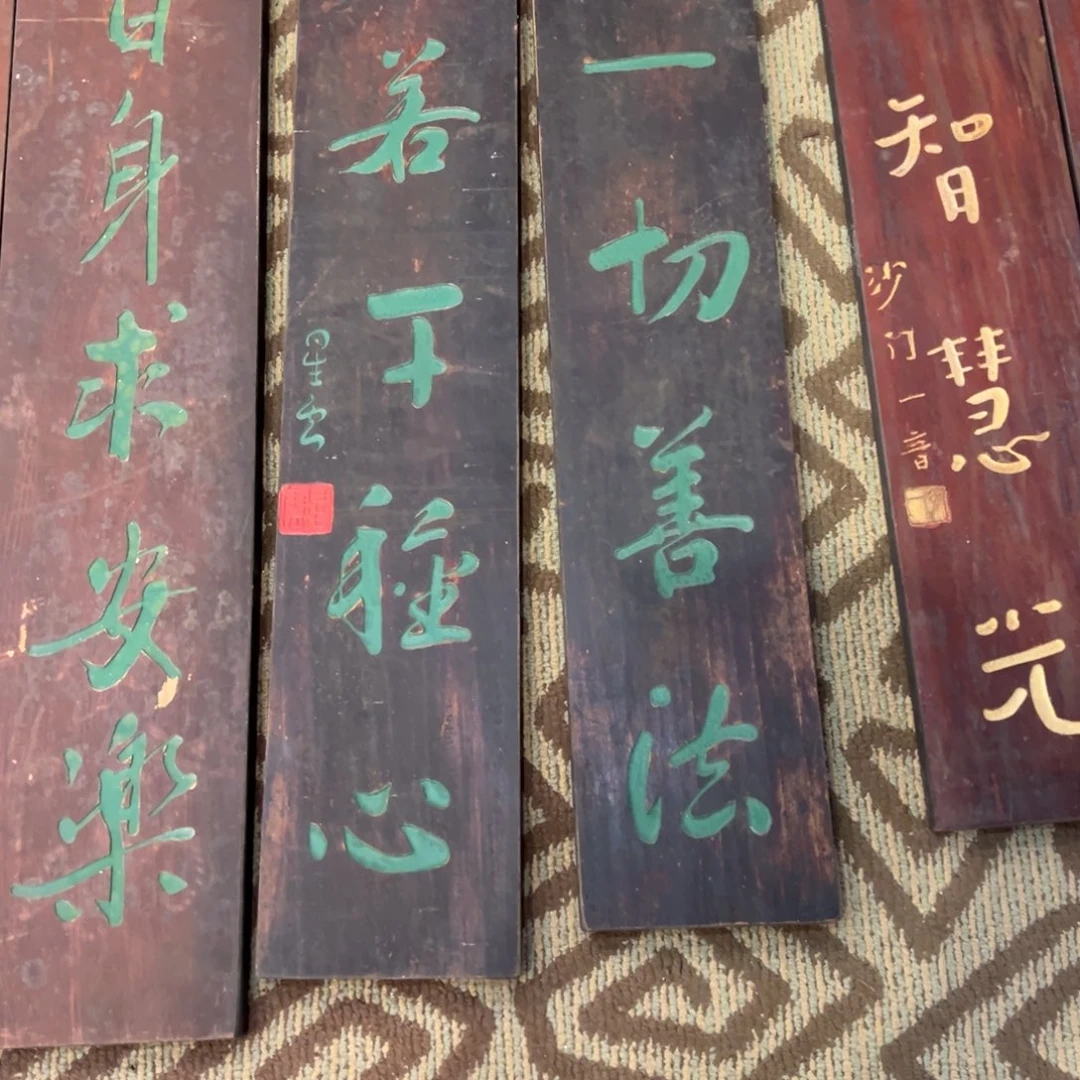 智慧光
沙门一音
一切善法
若干種心
星云
自身求安樂